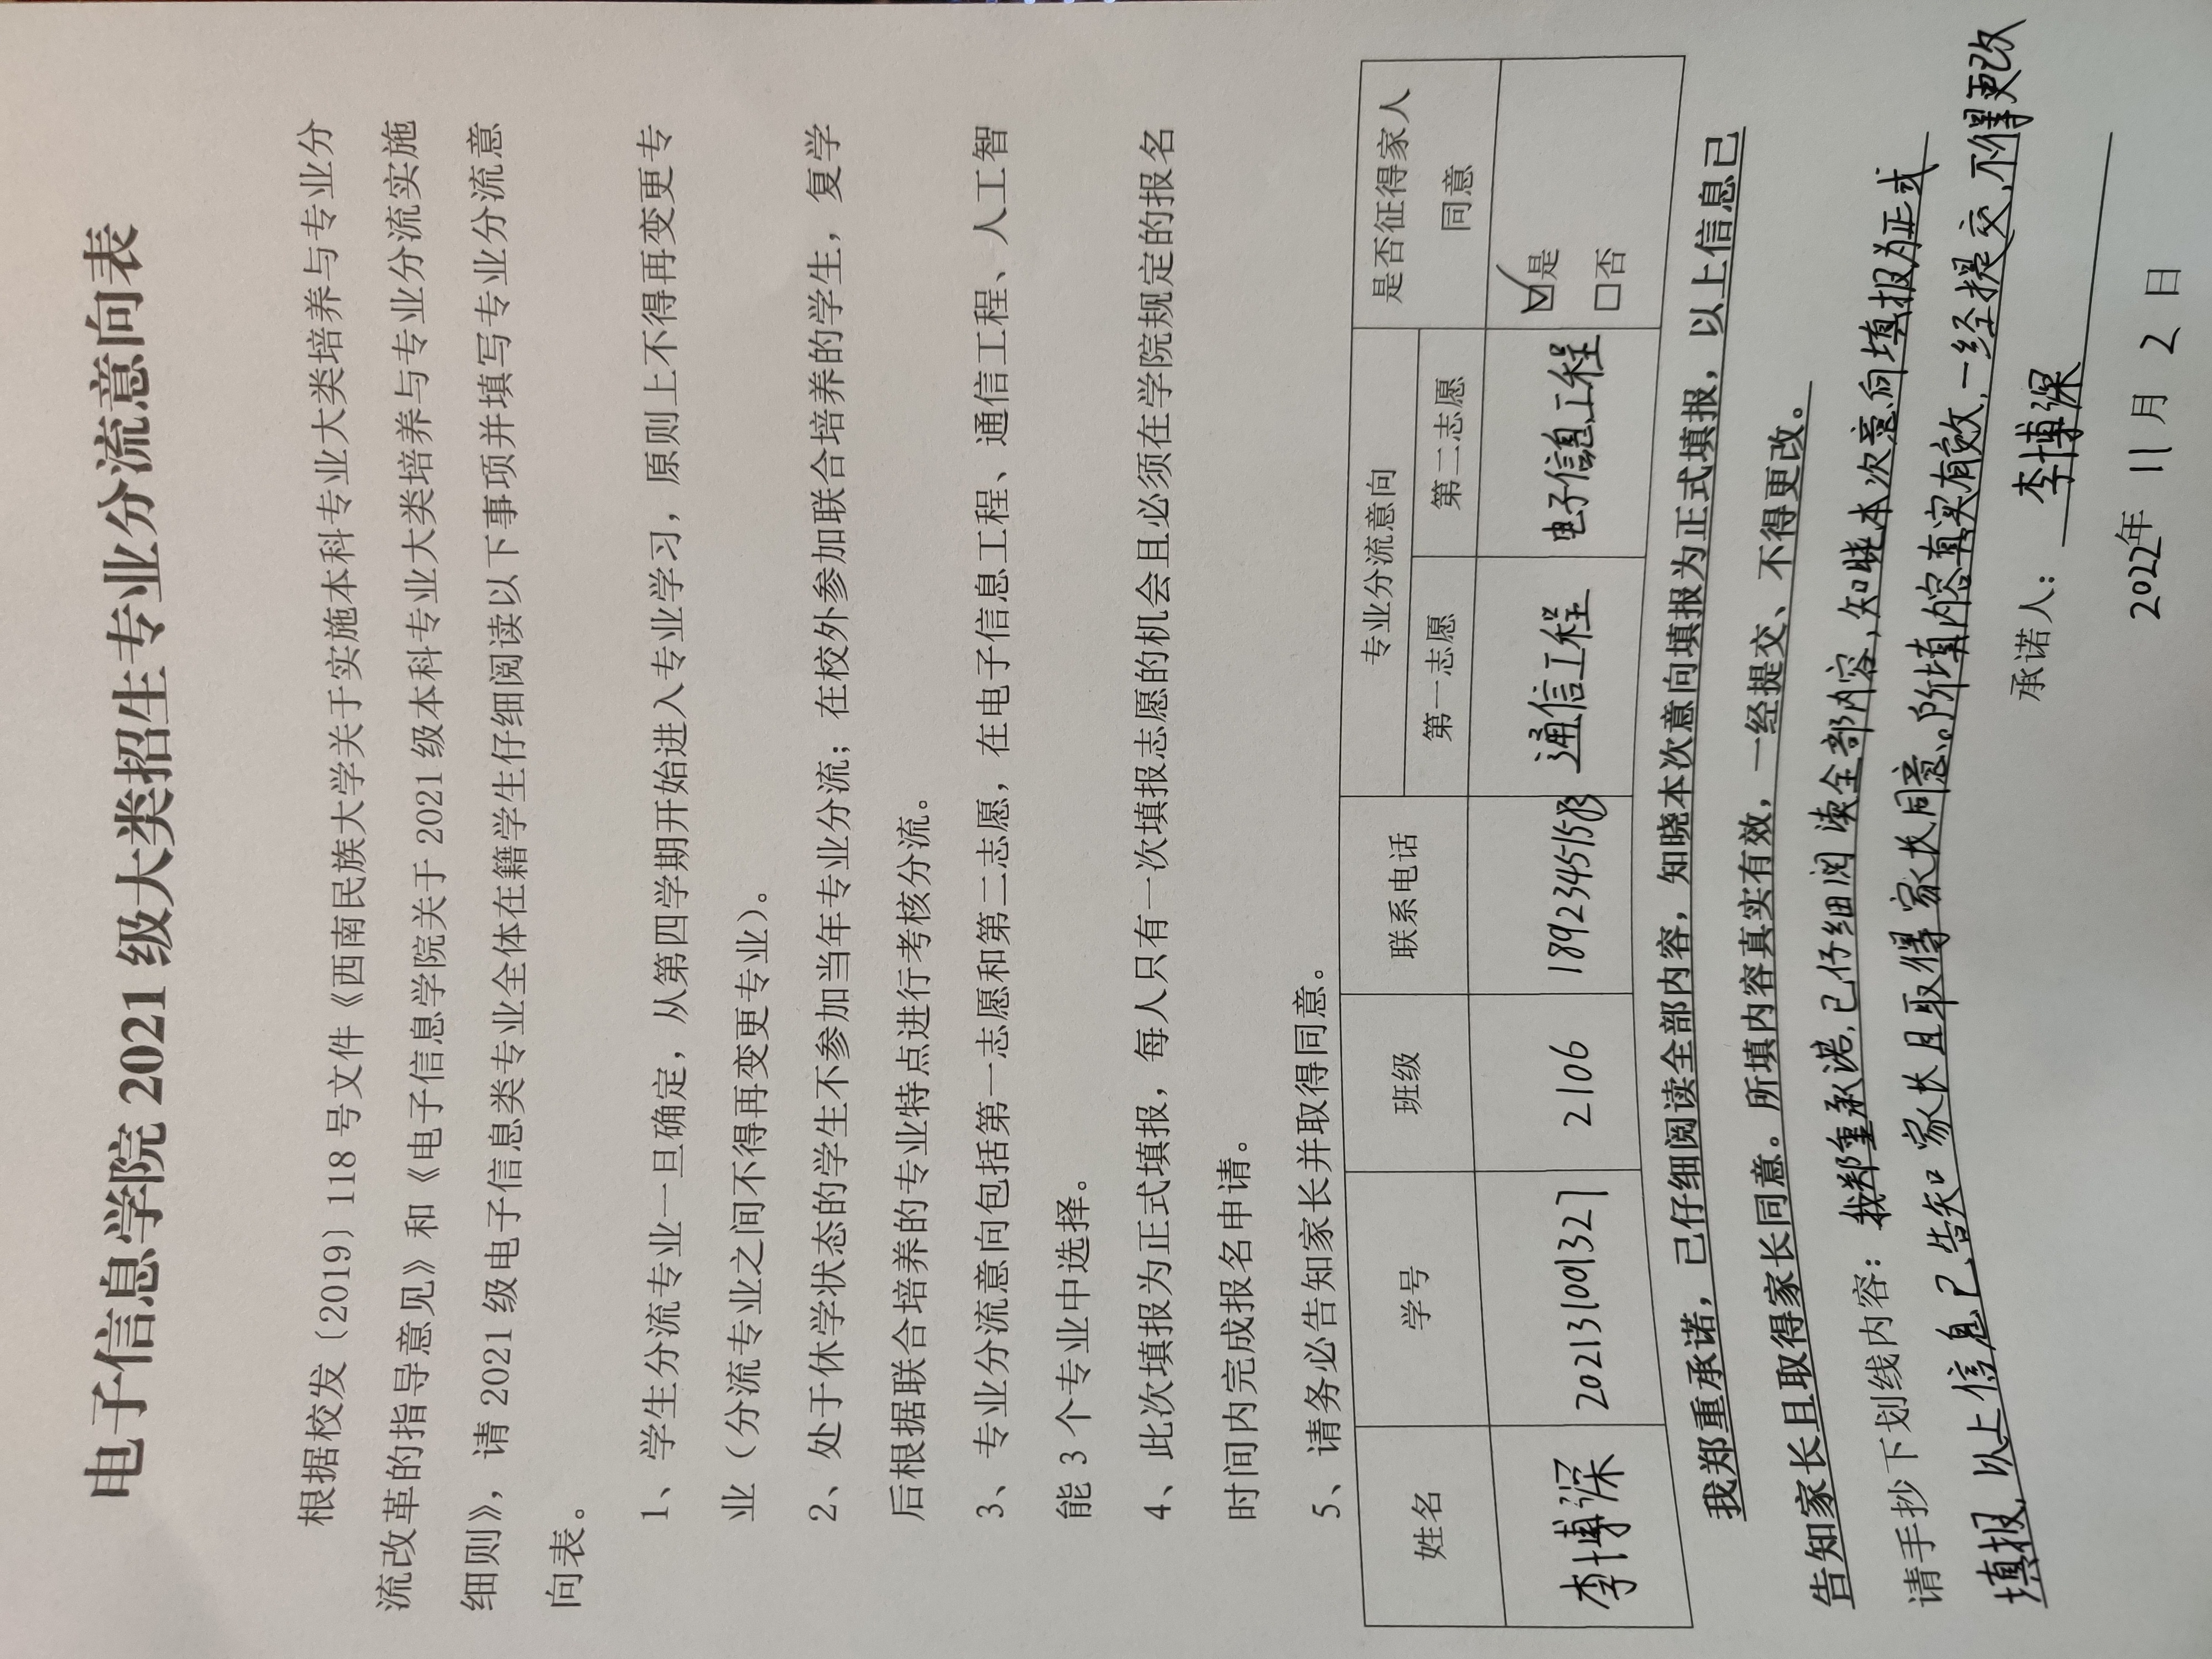 电子信息学院 2021 级大类招生专业分流意向表
根据校发〔2019〕118 号文件《西南民族大学关于实施本科专业大类培养与专业分
流改革的指导意见》和《电子信息学院关于 2021 级本科专业大类培养与专业分流实施
细则》，请 2021 级电子信息类专业全体在籍学生仔细阅读以下事项并填写专业分流意
向表。
1、学生分流专业一旦确定，从第四学期开始进入专业学习，原则上不得再变更专
业（分流专业之间不得再变更专业）。
2、处于休学状态的学生不参加当年专业分流；在校外参加联合培养的学生，复学
后根据联合培养的专业特点进行考核分流。
3、专业分流意向包括第一志愿和第二志愿，在电子信息工程、通信工程、人工智
能 3 个专业中选择。
4、此次填报为正式填报，每人只有一次填报志愿的机会且必须在学院规定的报名
时间内完成报名申请。
5、请务必告知家长并取得同意。
姓名 学号 班级 联系电话 专业分流意向 是否征得家人
第一志愿 第二志愿 同意
李博深 202131001327 2106 18923451583 通信工程 电子信息工程 ☑是
□否
我郑重承诺，已仔细阅读全部内容，知晓本次意向填报为正式填报，以上信息已
告知家长且取得家长同意。所填内容真实有效，一经提交、不得更改。
请手抄下划线内容：我郑重承诺，已仔细阅读全部内容，知晓本次意向填报为正式
填报，以上信息已告知家长且取得家长同意。所填内容真实有效，一经提交，不得更改
承诺人：李博深
2022年 11 月 2 日